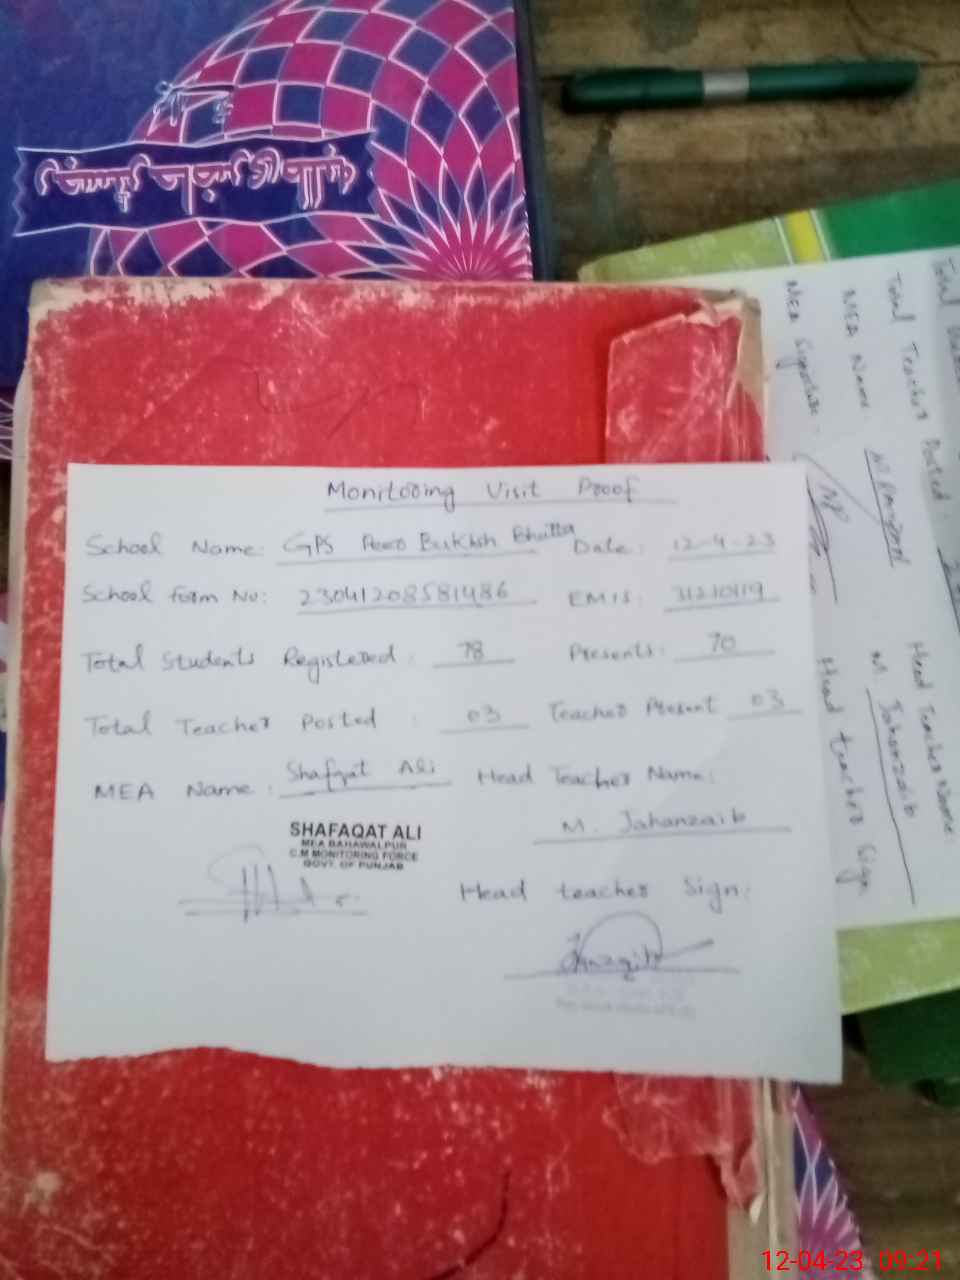 Monitoring Visit Proof
School Name: GPS Peer Bukhsh Bhutta Date: 12-4-23
School form No: 23041208581486 EMIS:
Total Students Registered: 78 Presents: 70
Total Teacher Posted : 03 Teacher Present 03
MEA Name: Shafqat Ali Head Teacher Name:
M. Jahanzaib
SHAFAQAT ALI
MEA BAHAWALPUR
C.M MONITORING FORCE
GOVT. OF PUNJAB
Head teacher Sign:
Jahanzaib
Total Teacher Posted:
MEA Name: Head Teacher Name:
M. Jahanzaib
MEA Signature: Head teacher Sign
12-04-23 09:21